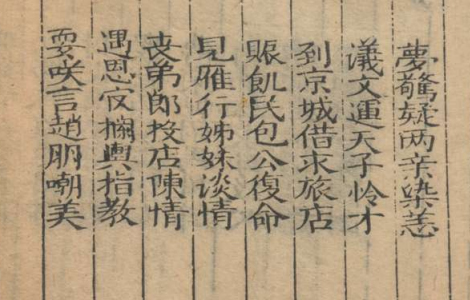 夢驚疑両亲染恙
議文運天子怜才
到京城借求旅店
賑飢民包公復命
見雁行姊妹谈情
丧弟郎投店陳情
遇恩官攔輿指教
耍咲言趙朋嘲美